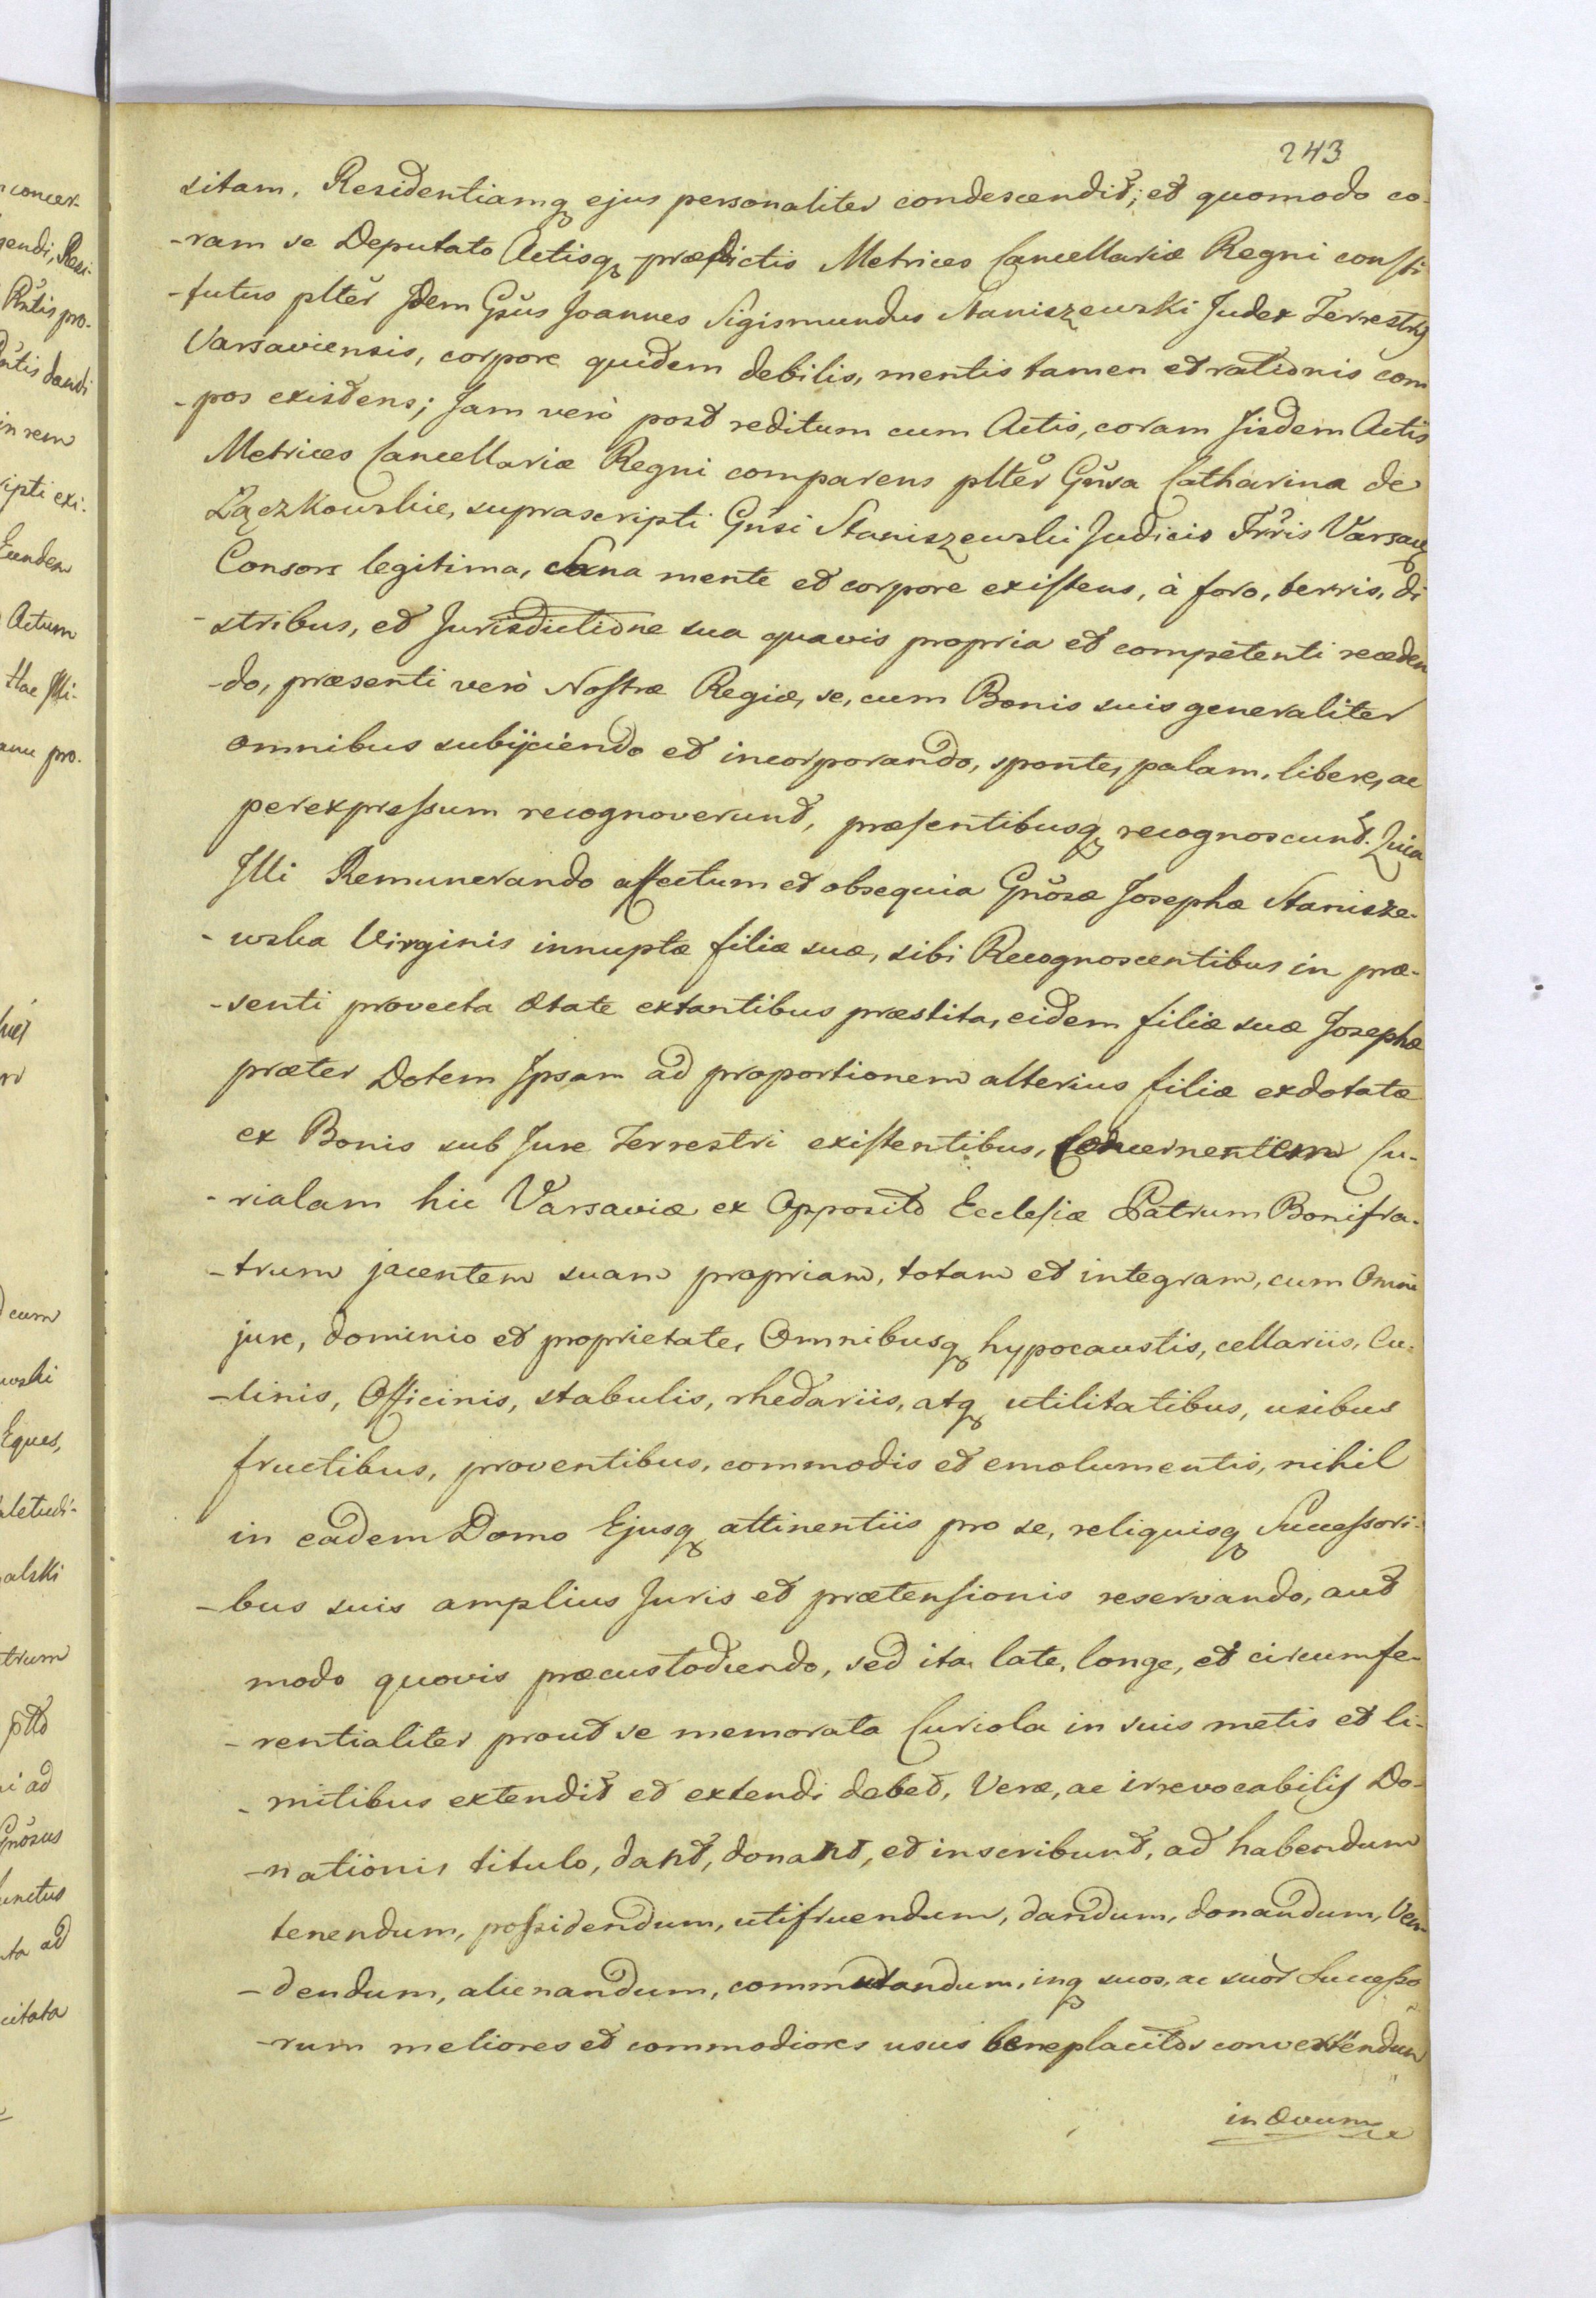 243
sitam, Residentiamq ejus personaliter condescendit; et quomodo co-
-ram se Deputato Actisq prædictis Metrices Cancellariæ Regni consti-
-tutus plter Idem Gsus Joannes Sigismundus Staniszewski Judex Terrestris
Varsaviensis, corpore quidem debilis, mentis tamen et rationis com
-pos existens; Jam verò post reditum cum Actis, coram Iisdem Actis
Metrices Cancellariæ Regni comparens plter Gnsa Catharina de
Łączkowskie, suprascripti Gnsi Staniszewski Judicis Trris Varsav
Consors legitima, sana mente et corpore existens, à foro, terris, di
-stribus, et Jurisdictione sua quavis propria et competenti receden
-do, præsenti verò Nostræ Regiæ, se, cum Bonis suis generaliter
omnibus subijciendo et incorporando, sponte, palam, libere, ac
perexpressum recognoverunt, præsentibusq recognoscunt. Quia
Illi Remunerando affectum et obsequia Gnosæ Josephæ Stanisze-
-wska Virginis innuptæ filiæ suæ, sibi Recognoscentibus in præ-
-senti provecta ætate extantibus præstita, eidem filiæ suæ Josephæ
præter Dotem Ipsam ad proportionem alterius filiæ exdotatæ
ex Bonis sub Jure Terrestri existentibus, Concernentem Cu-
-rialam hic Varsaviæ ex Opposito Ecclesiæ Patrum Bonifra-
-trum jacentem suam propriam, totam et integram, cum Omni
jure, dominio et proprietate, Omnibusq hypocaustis, cellariis, Cu-
-linis, Officinis, stabulis, rhedariis, atq utilitatibus, usibus
fructibus, proventibus, commodis et emolumentis, nihil
in eadem Domo Ejusq attinentiis pro se, reliquisq Successori-
-bus suis amplius Juris et prætensionis reservando, aut
modo quovis præcustodiendo, sed ita late, longe, et circumfe-
-rentialiter prout se memorata Curiola in suis metis et li-
-mitibus extendit et extendi debet, Veræ, ac irrevocabilis Do-
-nationis titulo, dant, donant, et inscribunt, ad habendum
tenendum, possidendum, utifruendum, dandum, donandum, Ven-
-dendum, alienandum, commutandum, inq suos, ac suor Successo
-rum meliores et commodiores usus beneplacitos convertendum
in ævum